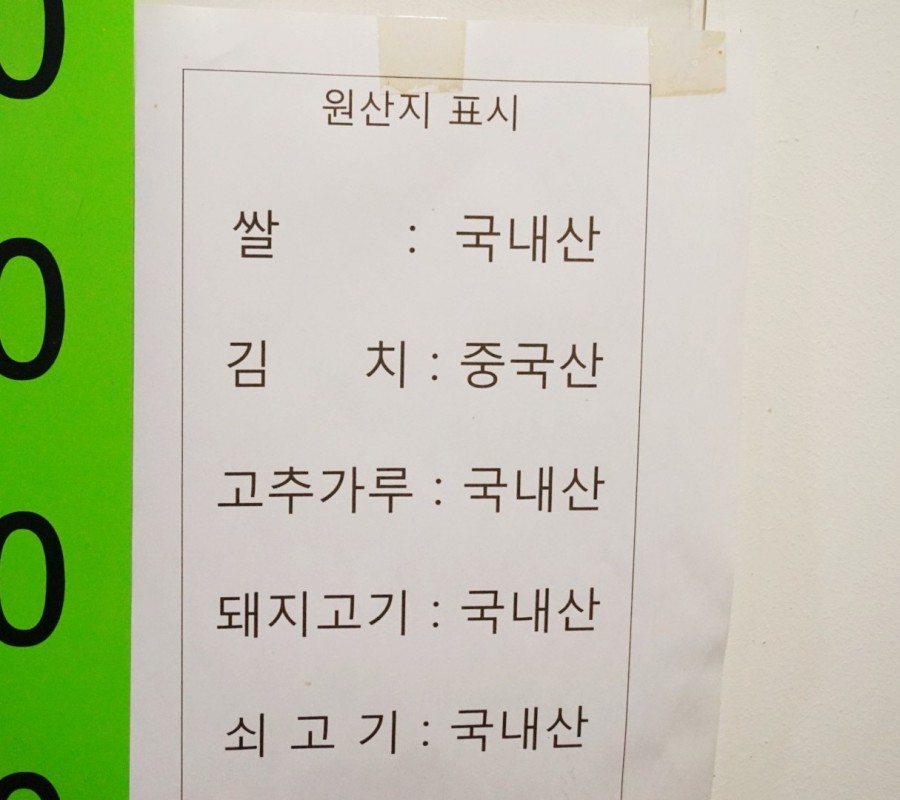 원산지 표시
쌀 : 국내산
김 치 : 중국산
고추가루 : 국내산
돼지고기 : 국내산
쇠 고 기 : 국내산
0
0
0